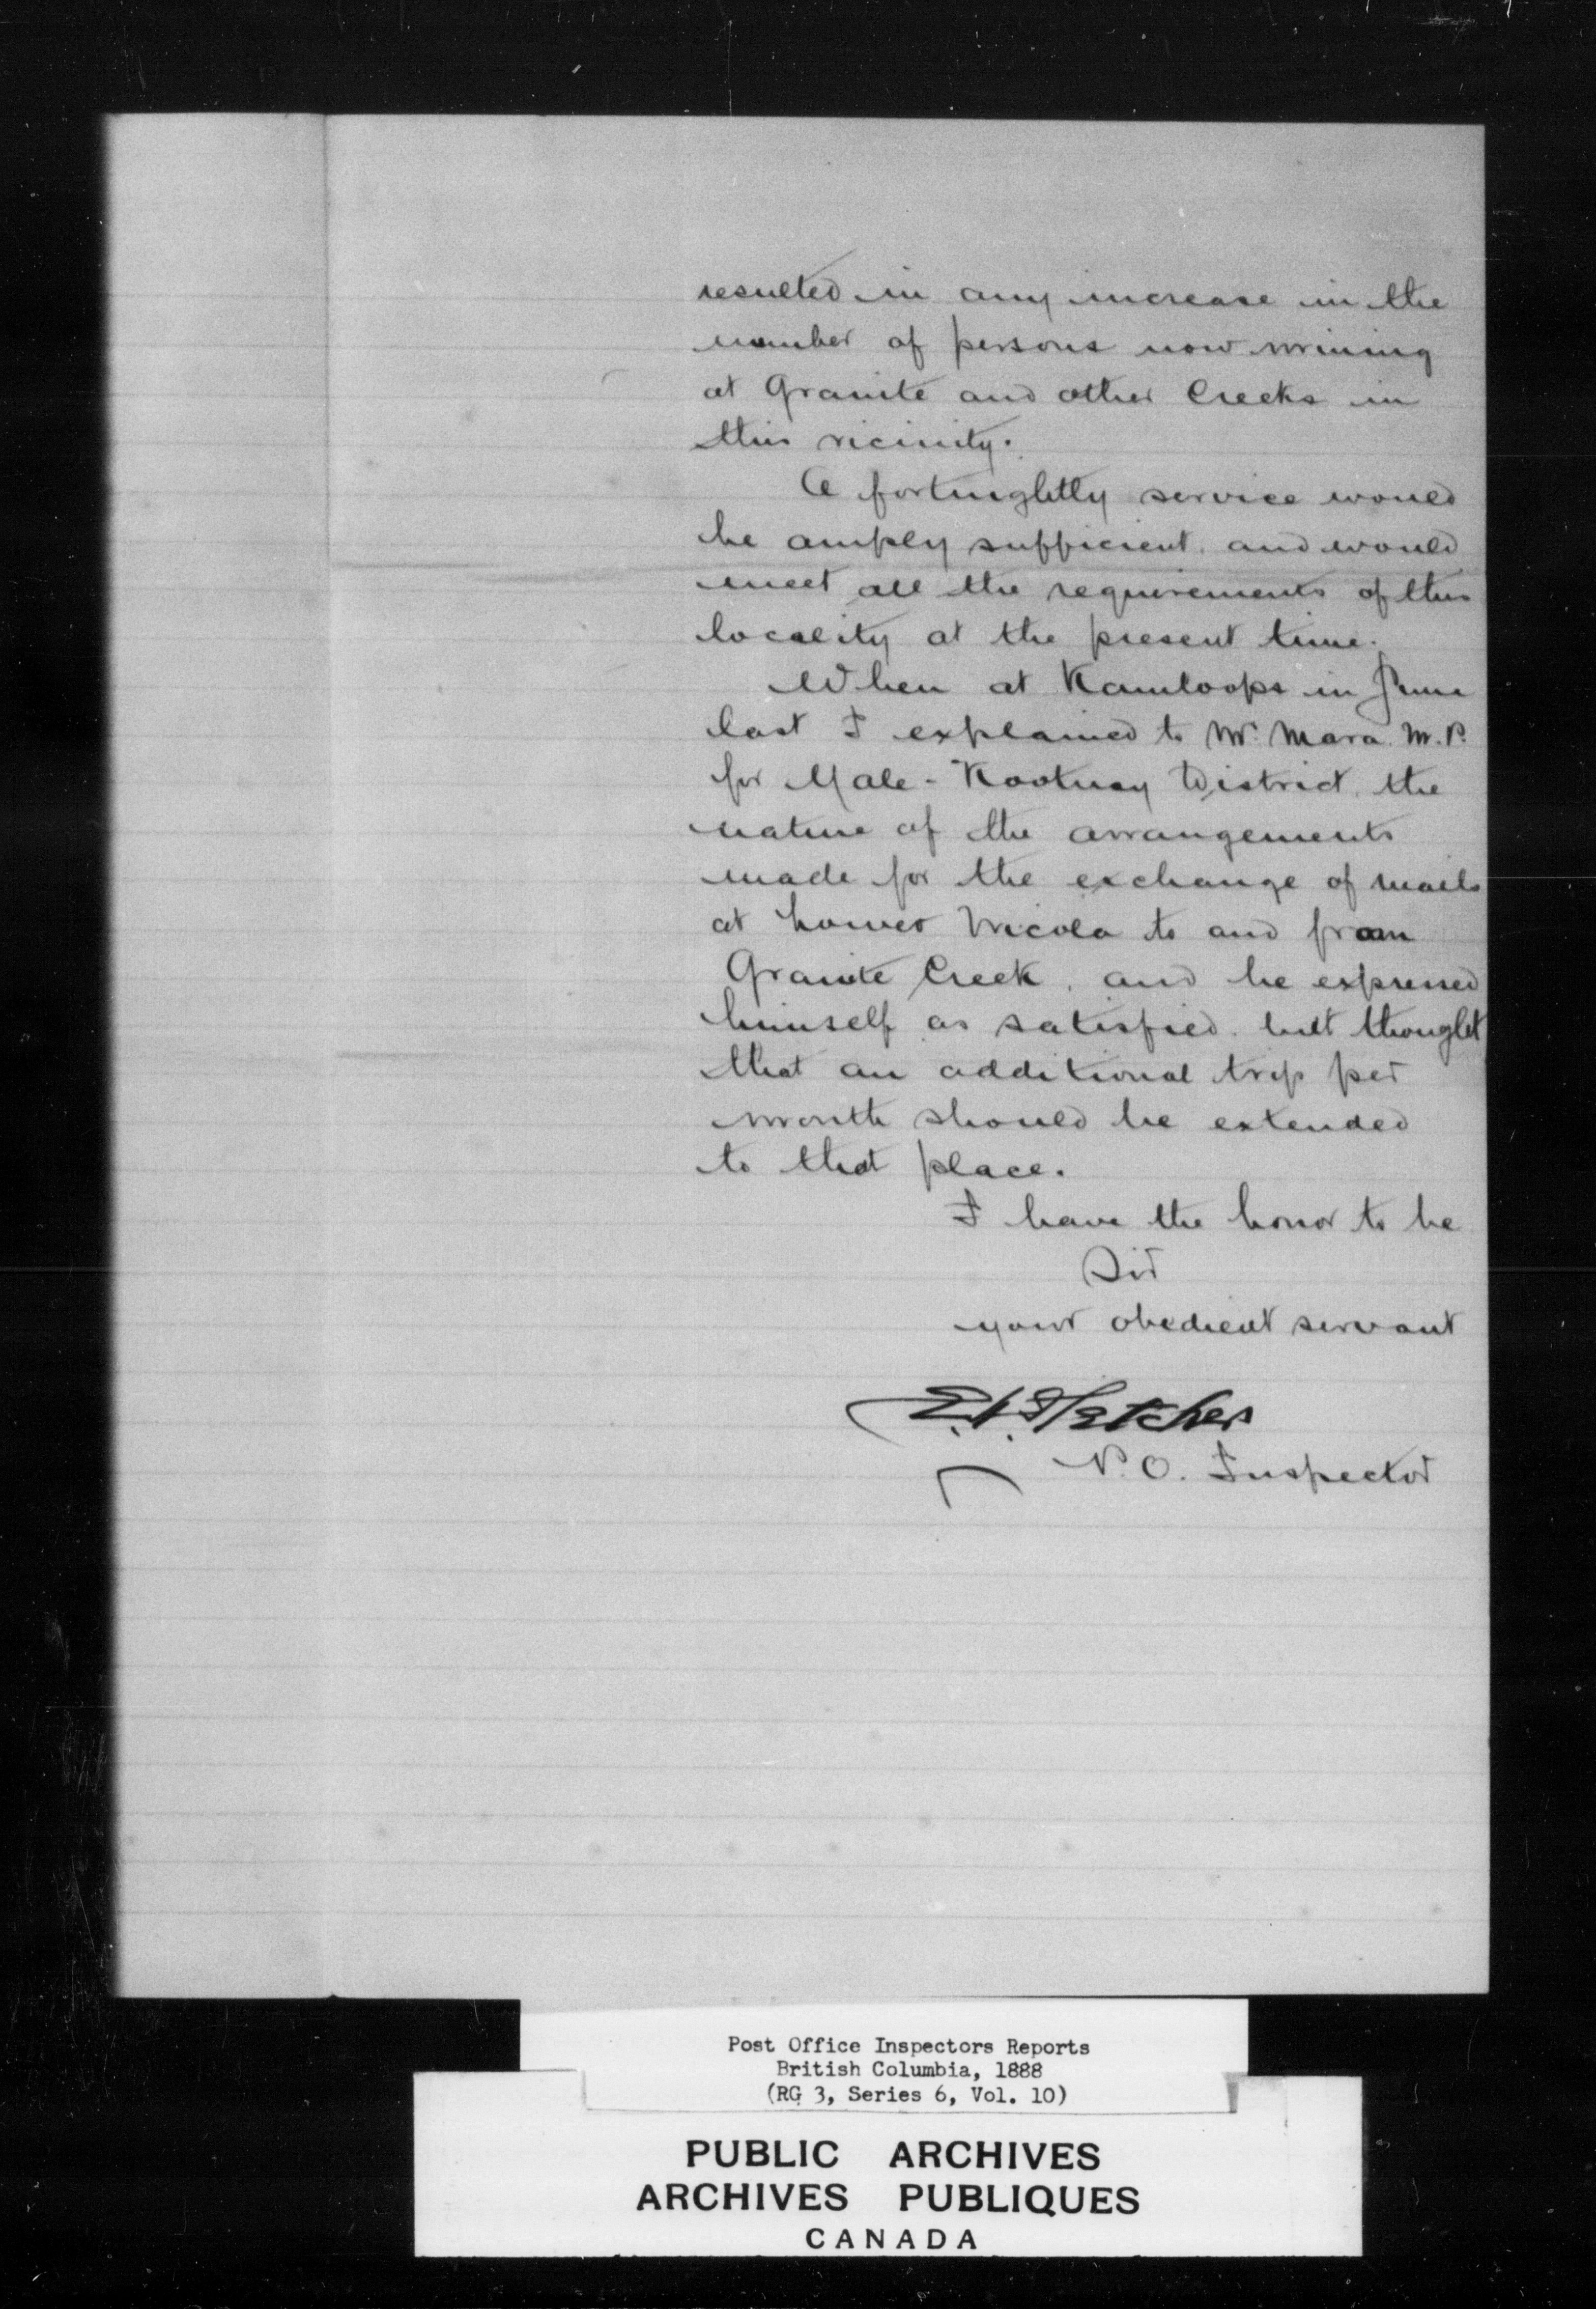 resulted in any increase in the
number of persons now mining
at Granite and other Creeks in
this vicinity.
A fortnightly service would
be amply sufficient. and would
meet all the requirements of this
locality at the present time.
When at Kamloops in June
last I explained to Mr. Mara. M.P.
for Yale - Kootnay District. the
nature of the arrangements
made for the exchange of mails
at Lower Nicola to and from
Granite Creek. and he expressed
himself as satisfied. but thought
that an additional trip per
month should be extended
to that place.
I have the honor to be
Sir
your obedient servant
E.H. Fletcher
P.O. Inspector
Post Office Inspectors Reports
British Columbia, 1888
(RG 3, Series 6, Vol. 10)
PUBLIC ARCHIVES
ARCHIVES PUBLIQUES
CANADA